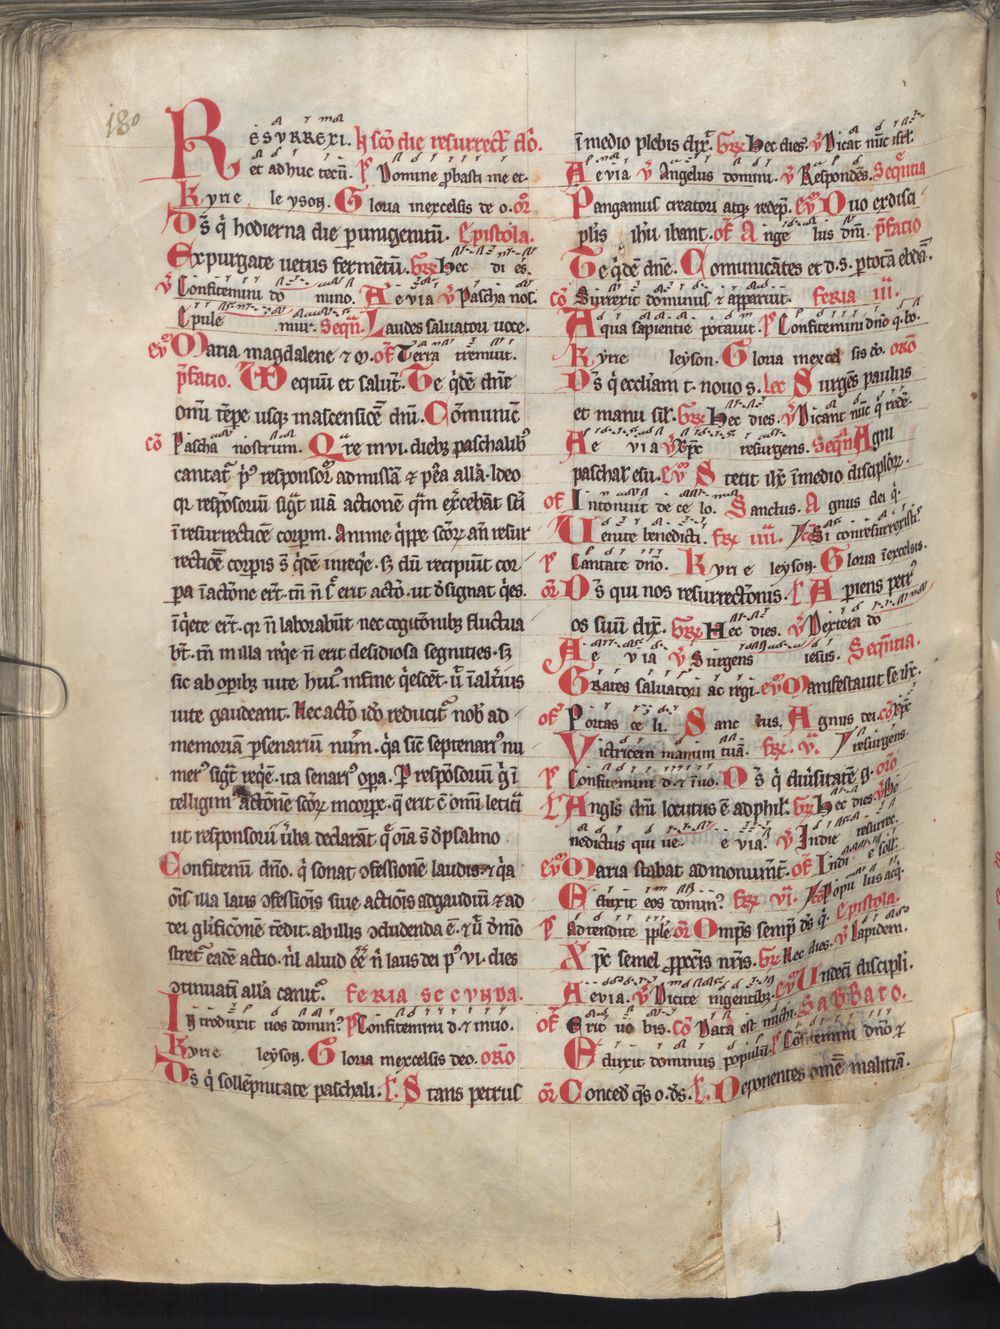 180
RESVRREXI. In sc̄o die resurrect̄ dn̄i.
et adhuc tecū. P̄ Domine ꝓbasti me et.
Kyrie leyson. Gloria inexcelsis deo. or̄
Ds̄ q̇ hodierna die ꝑunigenitū. Epistola.
Expurgate uetus fermētū. Gr̄ Hec dies.
V̄ Confitemini domino. Aevia V̄ Pascha nos.
Epulemur. Seqn̄. Laudes saluatori uoce.
ev̄ Maria magdalene ⁊ m̄. of̄ Terra tremuit.
p̄fatio. Wequū et salut̄. Te q̇dē dn̄e
om̄i tēpe usqꝫ inascensiōē dn̄i. Cōmunic̄
cō Pascha nostrum. Qr̄e in vi. diebꝫ paschalibꝰ
cantat̄ p̓ꝰ responsoꝝ admissā ⁊ p̄ea all̄a. Ideo
qr responsoriū sigt̄ illā actionē q̄m exercebāt sc̄i
ī resurrectiōē corpꝝm. Anime q̇ppe sc̄oꝝ an̄ resur
rectiōē corꝑis s̄ q̇dē inreq̇e. sꝫ dū recipiūt cor
ꝑa ī actōne er̄t. tn̄ n̄ ſ̄ erit actō. ut ꝺ̄signat q̇es.
ī q̇ete er̄t. qr n̄ laborabūt nec cogitōnibꝫ fluctua
bt̄. tn̄ in illa req̇e n̄ erit desidiosa segnities. sꝫ
sic ab opibꝫ uite huiꝰ infine q̇escēt. ū ī alt̄ius
uite gaudeant. Hec actō ic̄o reducit̄ nob̄ ad
memoriā ꝑsenariū num̄. q̇a sic̄ septenariꝰ nu
merꝰ sigt̄ req̇ē. ita senariꝰ oꝑa. Ꝑ respōsoriū g̊ ī
telligimꝰ actōnē sc̄oꝝ incorꝑe. q̄ erit c̄ om̄i letitia
ut responsorii ūba declarāt q̄ oīa s̄ ꝺ̄psalmo
Confitemī dn̄o. q̇ sonat ↄfessionē laudis. ⁊ q̇a
oīs illa laus ↄfessiōis siue actiōis adgaudiū ⁊ ad
dei glīficōnē tēdit. ab illis ↄcludenda ē. ⁊ ū dn̄mo
stret̄ eadē actio. nl̄ aliud eē̄ n̄ laus dei pꝰ vi. dies
ↄtinuati all̄a canit̄. FERIA SECVNDA.
Introduxit uos dominꝰ P̄ Confitemini d. ⁊ inuo.
Kyrie leyson. Gloria inexcelsis deo. oro
Ds̄ q̇ sollēpnitate paschali. L̄. Stans petrus
ī medio plebis dix̄. Gr̄ Hec dies. V̄ Dicat nūc isr̄l.
Aevia V̄ Angelus domini. V̄ Respondēs. Seqn̄tia
Pangamus creatori atqꝫ redēp. ev̄ Duo exdisci
plis ih̄u ibant. of̄ Angelus dn̄i. p̄fatio
Te q̇dē dn̄e. Comunicātes et d. s. ꝑtotā ebdā.
cō Surrexit dominus ⁊ apparuit. FERIA III.
Aqua sapientie potauit. P̄ Confitemini dn̄o q. bo.
Kyrie leyson. Gloria inexcelsis do. oro
Ds̄ q̇ eccl̄iam t. nouo s. lec Surgēs paulus
et manu sil̄. Gr̄ Hec dies. V̄ Dicant nūc q̇ redē.
Aevia V̄ Xp̄c resurgens. Seqn̄ Agni
paschal̄ esu. ev̄ Stetit ih̄c ī medio discipl̄oꝝ.
of̄ Intonuit de celo. Sanctus. Agnus dei q̇.
Uenite benedicti. Fer̄ IIII. cō Si conresurrexistꝭ
p̄ Cantate dn̄o. Kyrie leyson. Gloria īexcelsis.
or̄ Ds̄ qui nos resurrectōnis. L̄ Apiens petrꝰ
os suū dix̄. Gr̄ Hec dies. V̄ Dextera do
Aevia V̄ Surgens iesus. Seqn̄tia.
Grates saluatori ac regi. ev̄ Manifestauit se ih̄c.
of̄ Portas celi. Sanctus. Agnus dei. cō Xp̄c
Victricem manum tuā. Fer̄. V. resurgens.
p̄ Confitemini d. ⁊ īuo. Ds̄ q̇ diūsitatē g. oro
L̄ Angl̄s dn̄i locutus ē ad phil̄. Gr̄ Hec dies. V̄ Be
nedictus qui ue. evia. V̄ Indie resurrec.
ev̄ Maria stabat admonum̄t. of̄ Indie soll̄.
Eduxit eos dominꝰ Fer̄ VI. cō Popul̄us acq.
p̄ Adtendite pp̄le or̄ Omps̄ semp̄ ds̄ q̇. Epistola.
Xp̄c semel ꝓpcc̄is nr̄is. Gr̄ Hec dies. V̄ Lapidem.
Aevia. V̄ Dicite ingentibꝫ. ev̄ Undeci discipli.
of̄ Erit uobis. cō Data est michi. SABBATO.
Eduxit dominus populū. P̄ Cōfitemini dn̄o ⁊
or̄ Conced̄ qs̄ o. ds̄. L̄. Deponentes om̄ē malitiā.